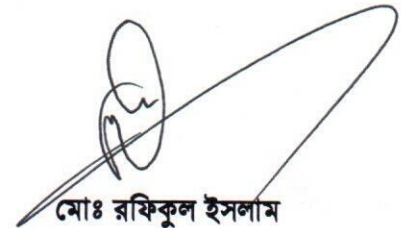 মোঃ রফিকুল ইসলাম